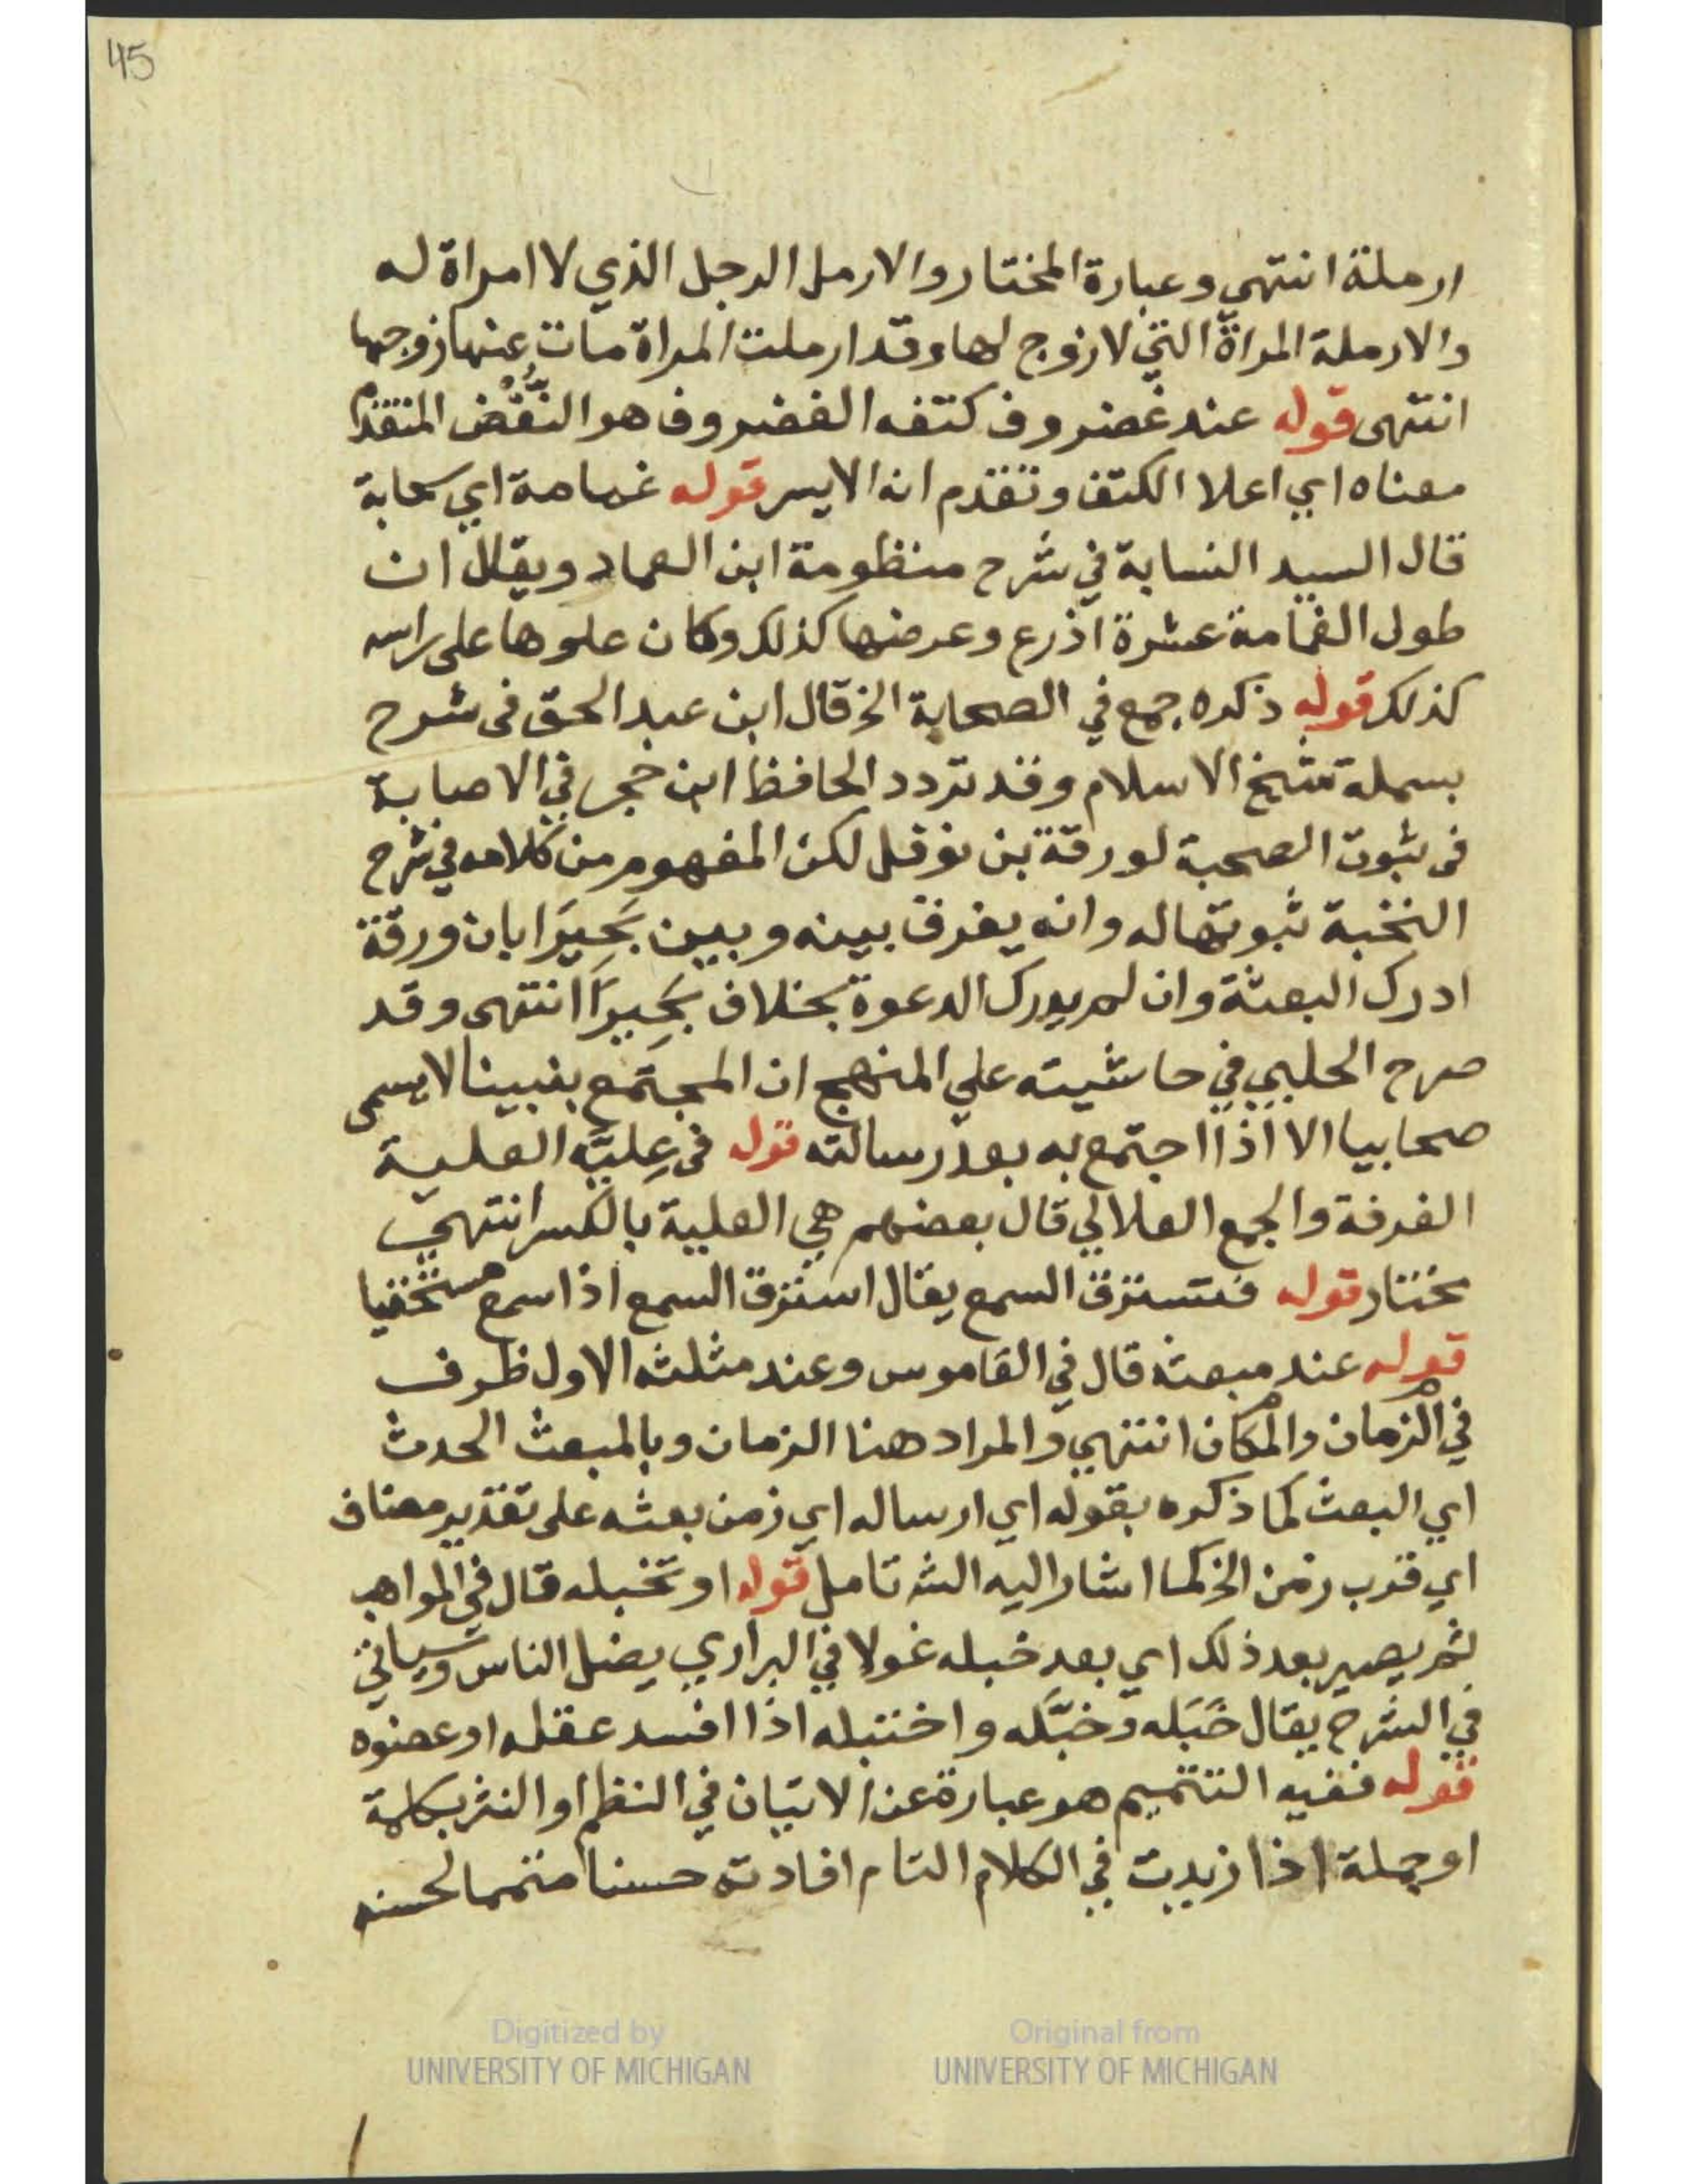 45
ارملة انتهي وعبارة المختار والارمل الرجل الذي لا امراة له
والارملة المراة التي لا زوج لها وقد ارملت المراة مات عنها زوجها
انتهى قوله عند غضروف كتفه الغضروف هو النُّغْض المتقدم
معناه اي اعلا الكتف وتقدم انه الايسر قوله غمامة اي سحابة
قال السيد النسابة في شرح منظومة ابن العماد ويقال ان
طول الغمامة عشرة اذرع وعرضها كذلك وكان علوها على راسه
كذلك قوله ذكره جمع في الصحابة الخ قال ابن عبد الحق في شرح
بسملة شيخ الاسلام وقد تردد الحافظ ابن حجر في الاصابة
في ثبوت الصحبة لورقة بن نوفل لكن المفهوم من كلامه في شرح
النخبة ثبوتها له وانه يفرق بينه وبين بَحِيرَا بان ورقة
ادرك البعثة وان لم يدرك الدعوة بخلاف بَحِيرَا انتهى وقد
صرح الحلبي في حاشيته علي المنهج ان المجتمع بنبينا لا يسمى
صحابيا الا اذا اجتمع به بعد رسالته قوله في عِليَّه العلية
الغرفة والجمع العلالي قال بعضهم هي العلية بالكسر انتهي
مختار قوله فتسترق السمع يقال استرق السمع اذا سمع مستخفيا
قوله عند مبعثه قال في القاموس وعند مثلثه الاول ظرف
في الزمان والمكان انتهي والمراد هنا الزمان وبالمبعث الحدث
اي البعث كما ذكره بقوله اي ارساله اي زمن بعثه على تقدير مضاف
اي قرب زمن الخ كما اشار اليه الشه تامل قوله او تخبله قال في المواهب
ثم يصير بعد ذلك اي بعد خبله غولا في البراري يضل الناس وسياتي
في الشرح يقال خَبَله وخبَّله واختبله اذا افسد عقله او عضوه
قوله ففيه التتميم هو عبارة عن الاتيان في النظم او النثر بكلمة
او جملة اذا زيدت في الكلام التام افادته حسنا متمما لحسنه
Digitized by
UNIVERSITY OF MICHIGAN
Original from
UNIVERSITY OF MICHIGAN